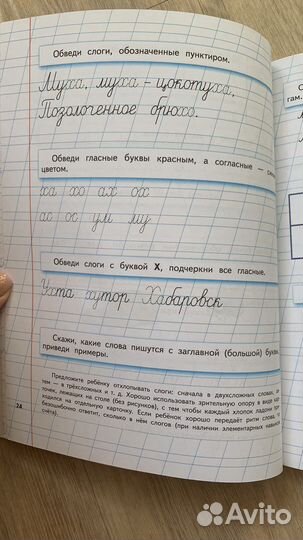 Обведи слоги, обозначенные пунктиром.
Муха, муха - цокотуха,
Позолоченное брюхо.
Обведи гласные буквы красным, а согласные — 
цветом.
ха хо ах ох
ас ос ум му
Обведи слоги с буквой Х, подчеркни все гласные.
Ухта хутор Хабаровск
Скажи, какие слова пишутся с заглавной (большой) буквы,
приведи примеры.
Предложите ребёнку отхлопывать слоги: сначала в двухсложных словах,
тем — в трёхсложных и т. д. Хорошо использовать зрительную опору в виде
точек, лежащих на столе (без рисунков), с тем чтобы каждый хлопок ладони
ходился на отдельную карточку. Если ребёнок хорошо передаёт ритм слова, то
безошибочно ответит, сколько в нём слогов (при наличии элементарных навыков
счёта).
24
Avito